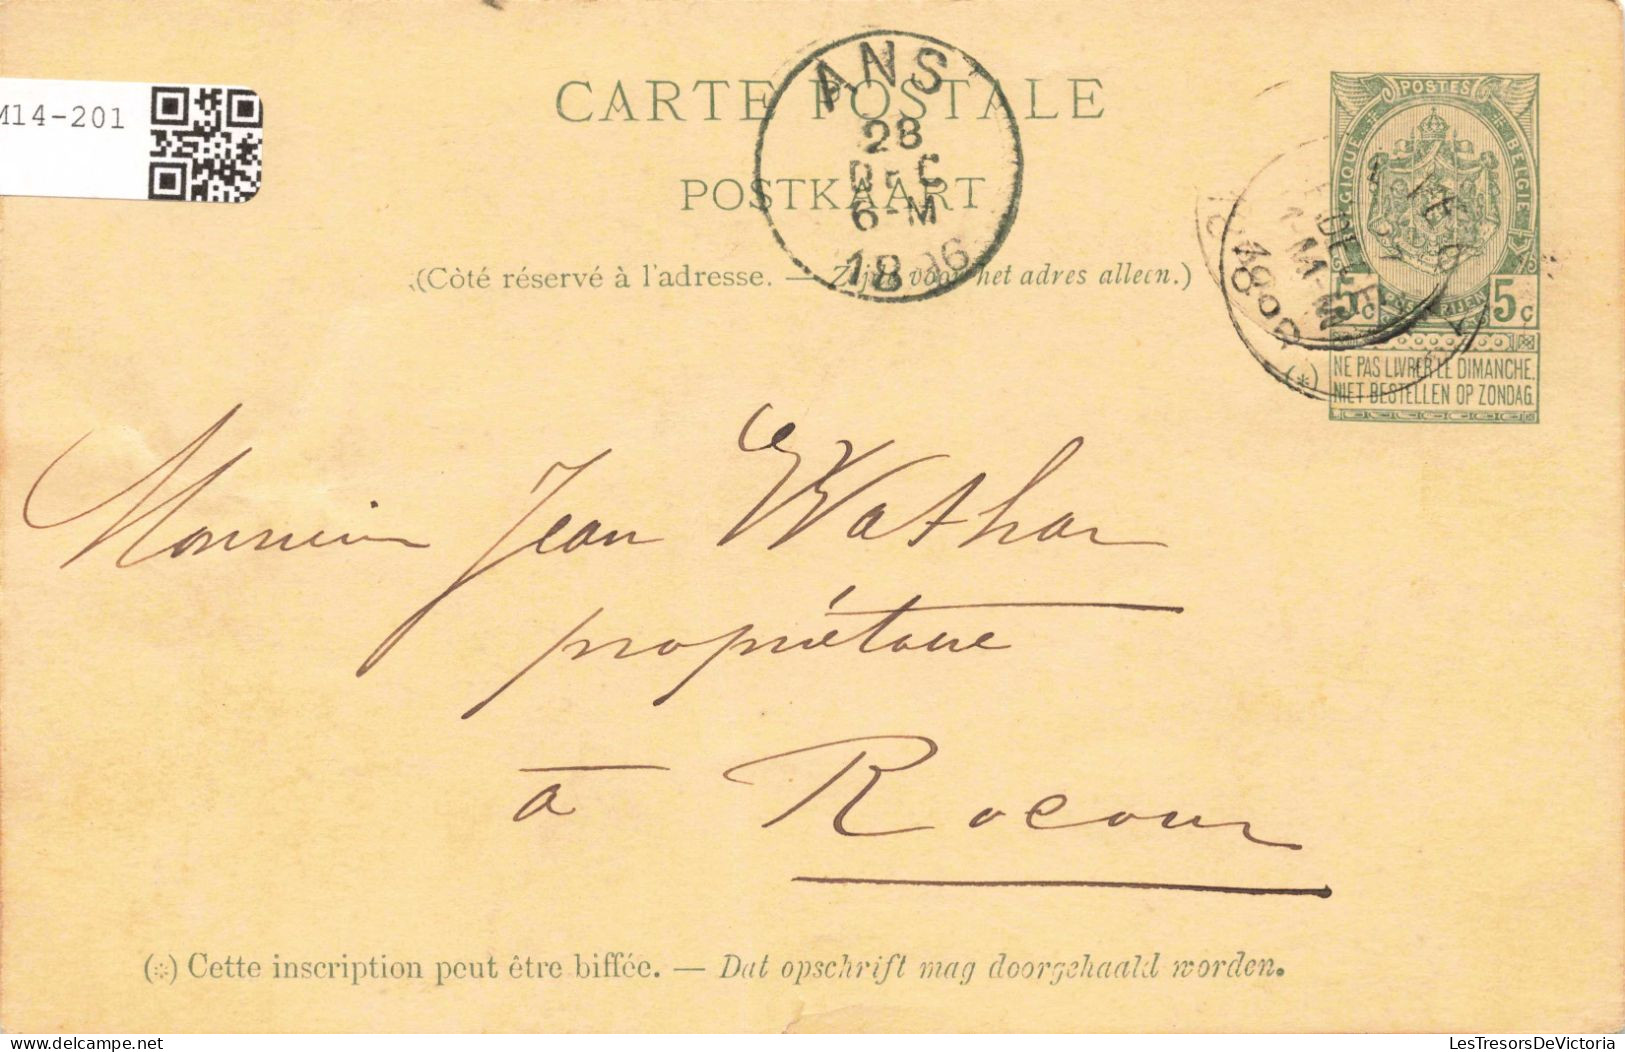 M14-201
CARTE POSTALE
POSTKAART
(Côté réservé à l'adresse. — Zijde voor het adres alleen.)
ANS
28
DEC
6-M
1896
POSTES
BELGIQUE
BELGIE
5c 5c
NE PAS LIVRER LE DIMANCHE.
NIET BESTELLEN OP ZONDAG.
(*)
Monsieur Jean Wathar
propriétaire
à Rocour
(*) Cette inscription peut être biffée. — Dat opschrift mag doorgehaald worden.
LesTresorsDeVictoria.com